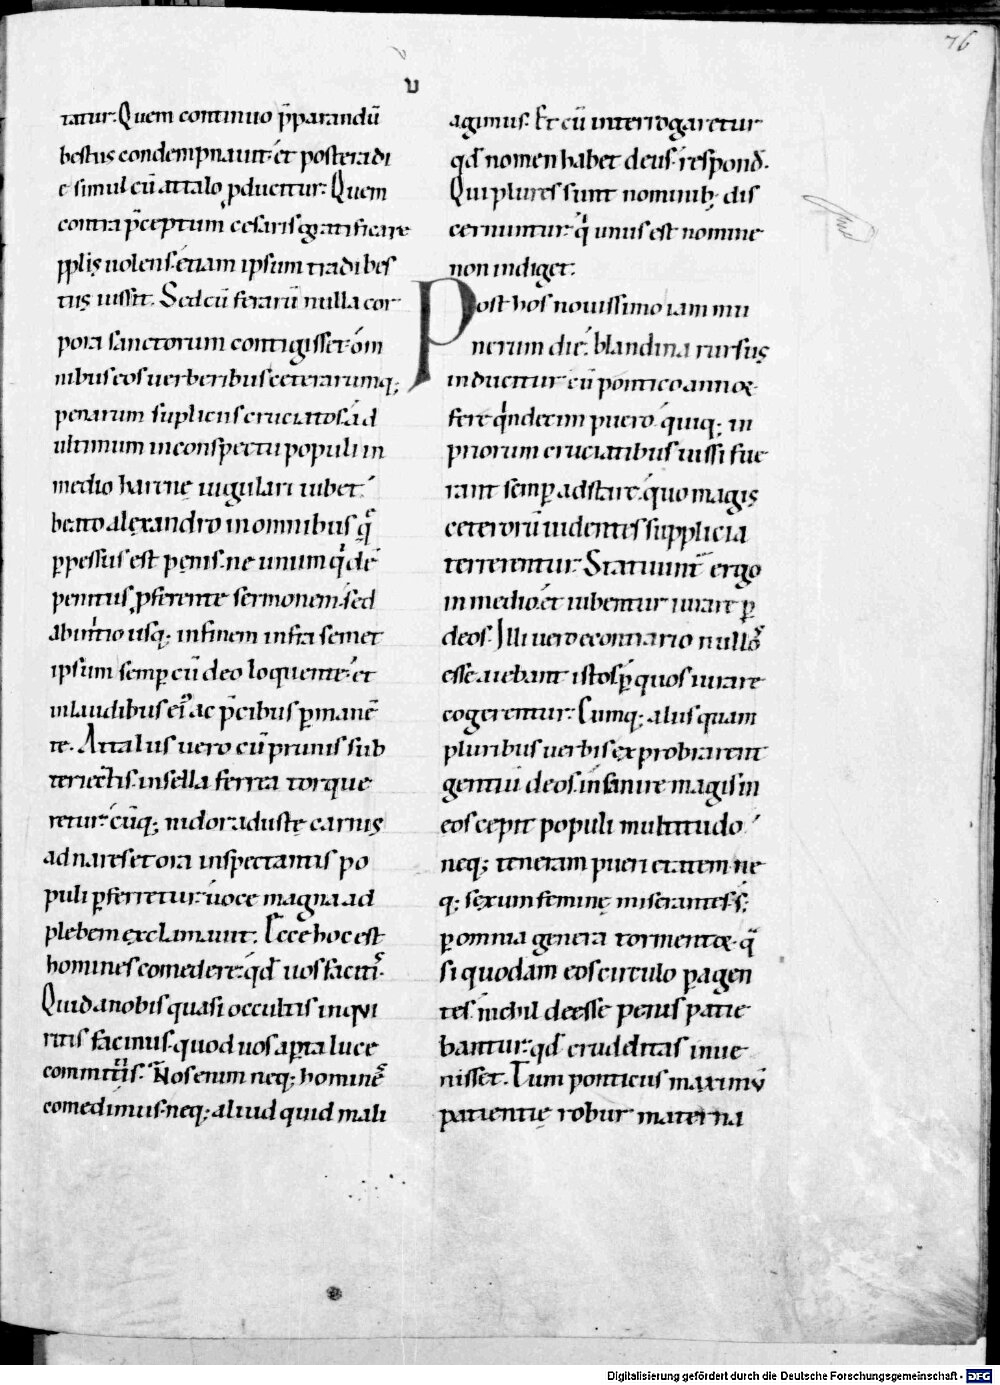 76
v
tatur. Quem continuo p̄parandū
bestiis condempnauit. et posteradi
e simul cū attalo ꝓducitur. Quem
contra p̄ceptum cesaris gratificare
pplis uolens. etiam ipsum tradi bes
tiis iussit. Sed cū ferarū nulla cor
pora sanctorum contigisset. om̄
nibus eos uerberibus ceterarumq;
penarum supliciis cruciatos. ad
ultimum in conspectu populi in
medio harenę iugulari iubet.
beato alexandro in omnibus q̄
ꝑpessus est penis. ne unum qͥdē
penitus ꝓferente sermonem. sed
ab initio usq; in finem infra semet
ipsum semꝑ cū deo loquente. et
in laudibus eiꝰ ac p̄cibus ꝑmanē
te. Attalus uero cū prunis sub
teriectis. in sella ferrea torque
retur. cūq; nidor adustę carnis
ad nares et ora inspectantis po
puli ꝑferretur. uoce magna ad
plebem exclamauit. Ecce hoc est
homines comedere. qd̄ uos facitis.
Quid a nobis quasi occultis inqui
ritis facinus. quod uos aꝑta luce
committitis. Nos enim neq; hominē
comedimus. neq; aliud quid mali
agimus. Et cū interrogaretur
qd̄ nomen habet deus. respond̄.
Qui plures sunt nominib; dis
cernuntur. qͥ unus est nomine
non indiget.
Post hos nouissimo iam mu
nerum die. blandina rursus
inducitur cū pontico annoꝝ
fere qͥndecim puero. quiq; in
priorum cruciatibus iussi fue
rant semꝑ adstare. quo magis
ceterorū uidentes supplicia
terrerentur. Statuunt̄ ergo
in medio. et iubentur iurare ꝑ
deos. Illi uero econtrario nullos
esse aiebant istos ꝑ quos iurare
cogerentur. Cumq; aliis quam
pluribus uerbis exprobrarent
gentiū deos. insanire magis in
eos cepit populi multitudo.
neq; teneram pueri etatem. ne
q; sexum feminę miserantes. s;
ꝑ omnia genera tormentoꝝ. q̄
si quodam eos circulo ꝑagen
tes. nichil deesse penis patie
bantur. qd̄ crudelitas inue
nisset. Tum ponticus maximū
patientię robur materna
Digitalisierung gefördert durch die Deutsche Forschungsgemeinschaft - DFG